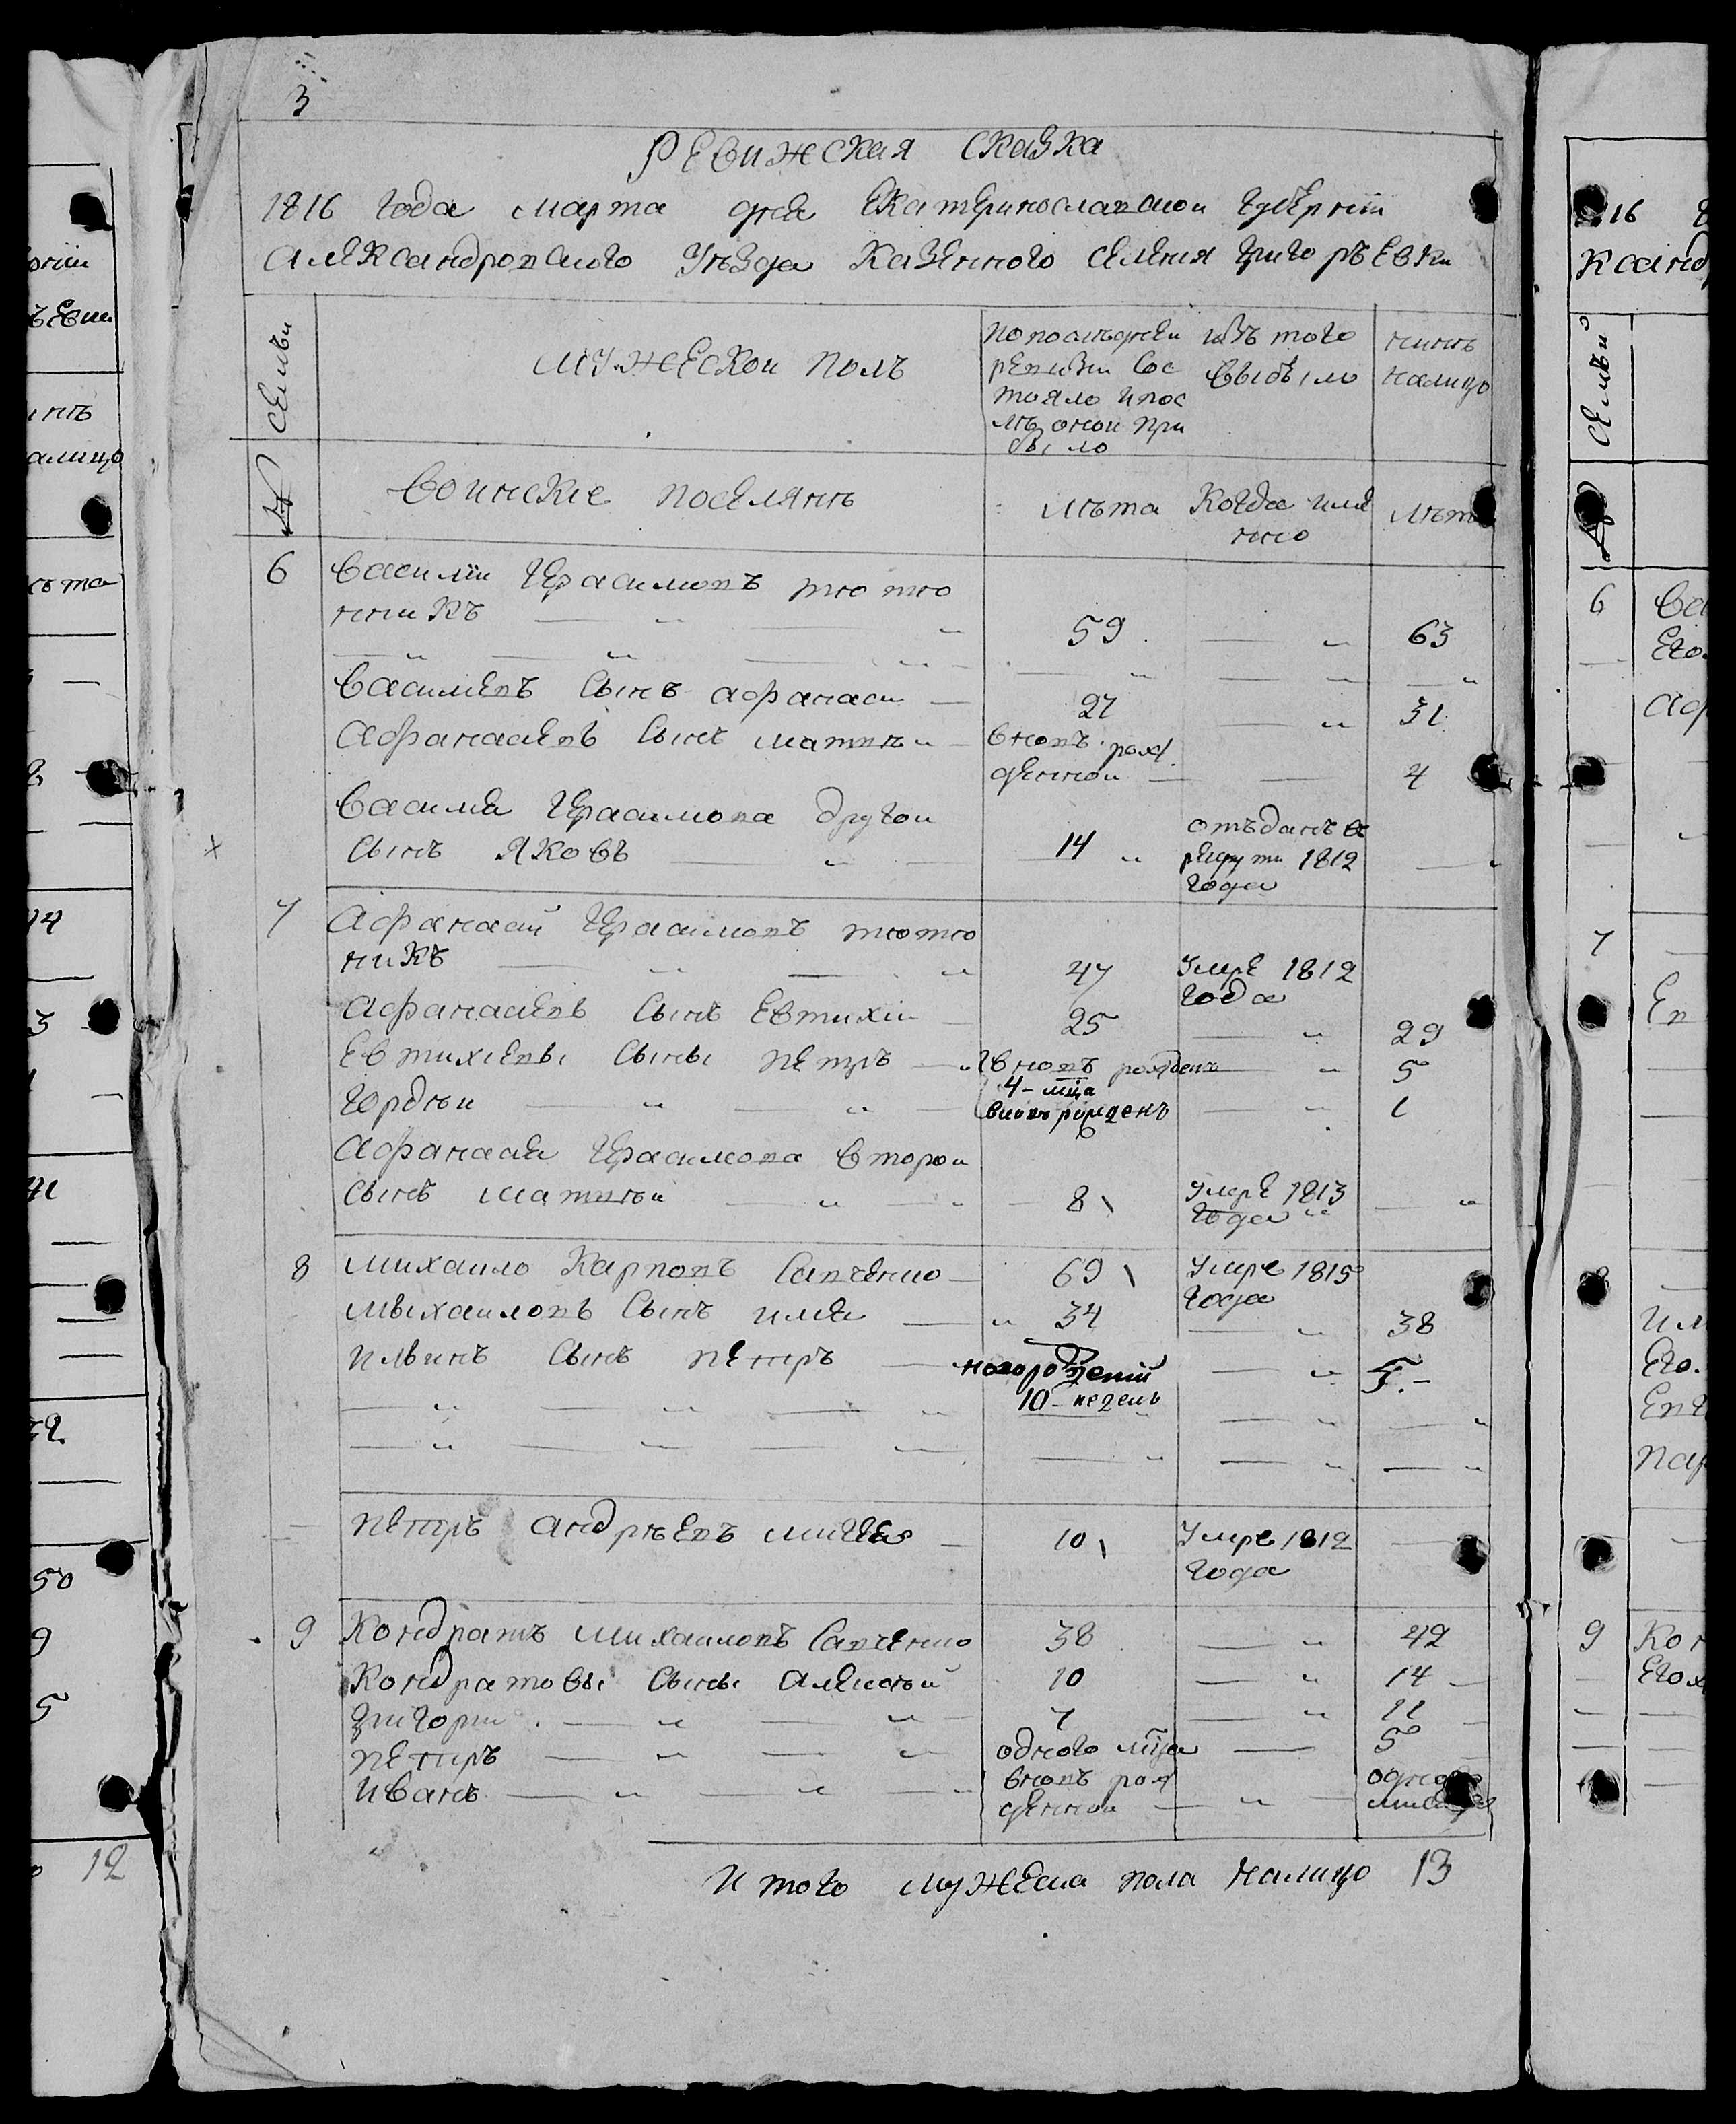 3
Ревижская сказка
1816 года марта дня Екатеринославской губернiи
Александровского уѣзда казенного селения Григорьевки
Семьи
мужеской полъ
по последней ревизи состояло и после оной прибыло
изъ того выбыло
нинѣ налицо
№
воинские поселянѣ
лѣта
Когда имянно
лѣта
6
Василiй Герасимовъ тютюнникъ
59
63
Васильевъ сынъ афанаси
27
31
Афанасиевъ сынъ матвѣй
вновь рожденной
4
Василия Герасимова другой сынъ Яковъ
14
отъданъ в рекруты 1812 года
7
Афанасий Герасимовъ тютюникъ
47
умре 1812 года
Афанасиевъ сынъ Евтихiй
25
29
Евтихиевы сыны петръ
вновь рожденъ
4-мца
5
Гордѣй
вновь рожденъ
1
Афанасия Герасимова второй сынъ матвѣй
8
умре 1813 года
8
михаило Карповъ Савченко
69
умре 1815 года
михаиловъ сынъ илия
34
38
ильинъ сынъ петръ
новорожденiй
10-недель
5.-
петръ андрѣевъ
10
умре 1812 года
9
Кондратъ михаиловъ Савченко
38
42
Кондратовы сыны алексѣй
10
14
Григорий
7
11
петръ
одного мца
5
иванъ
вновь рожденной
одного месяца
итого мужеска пола налицо 13